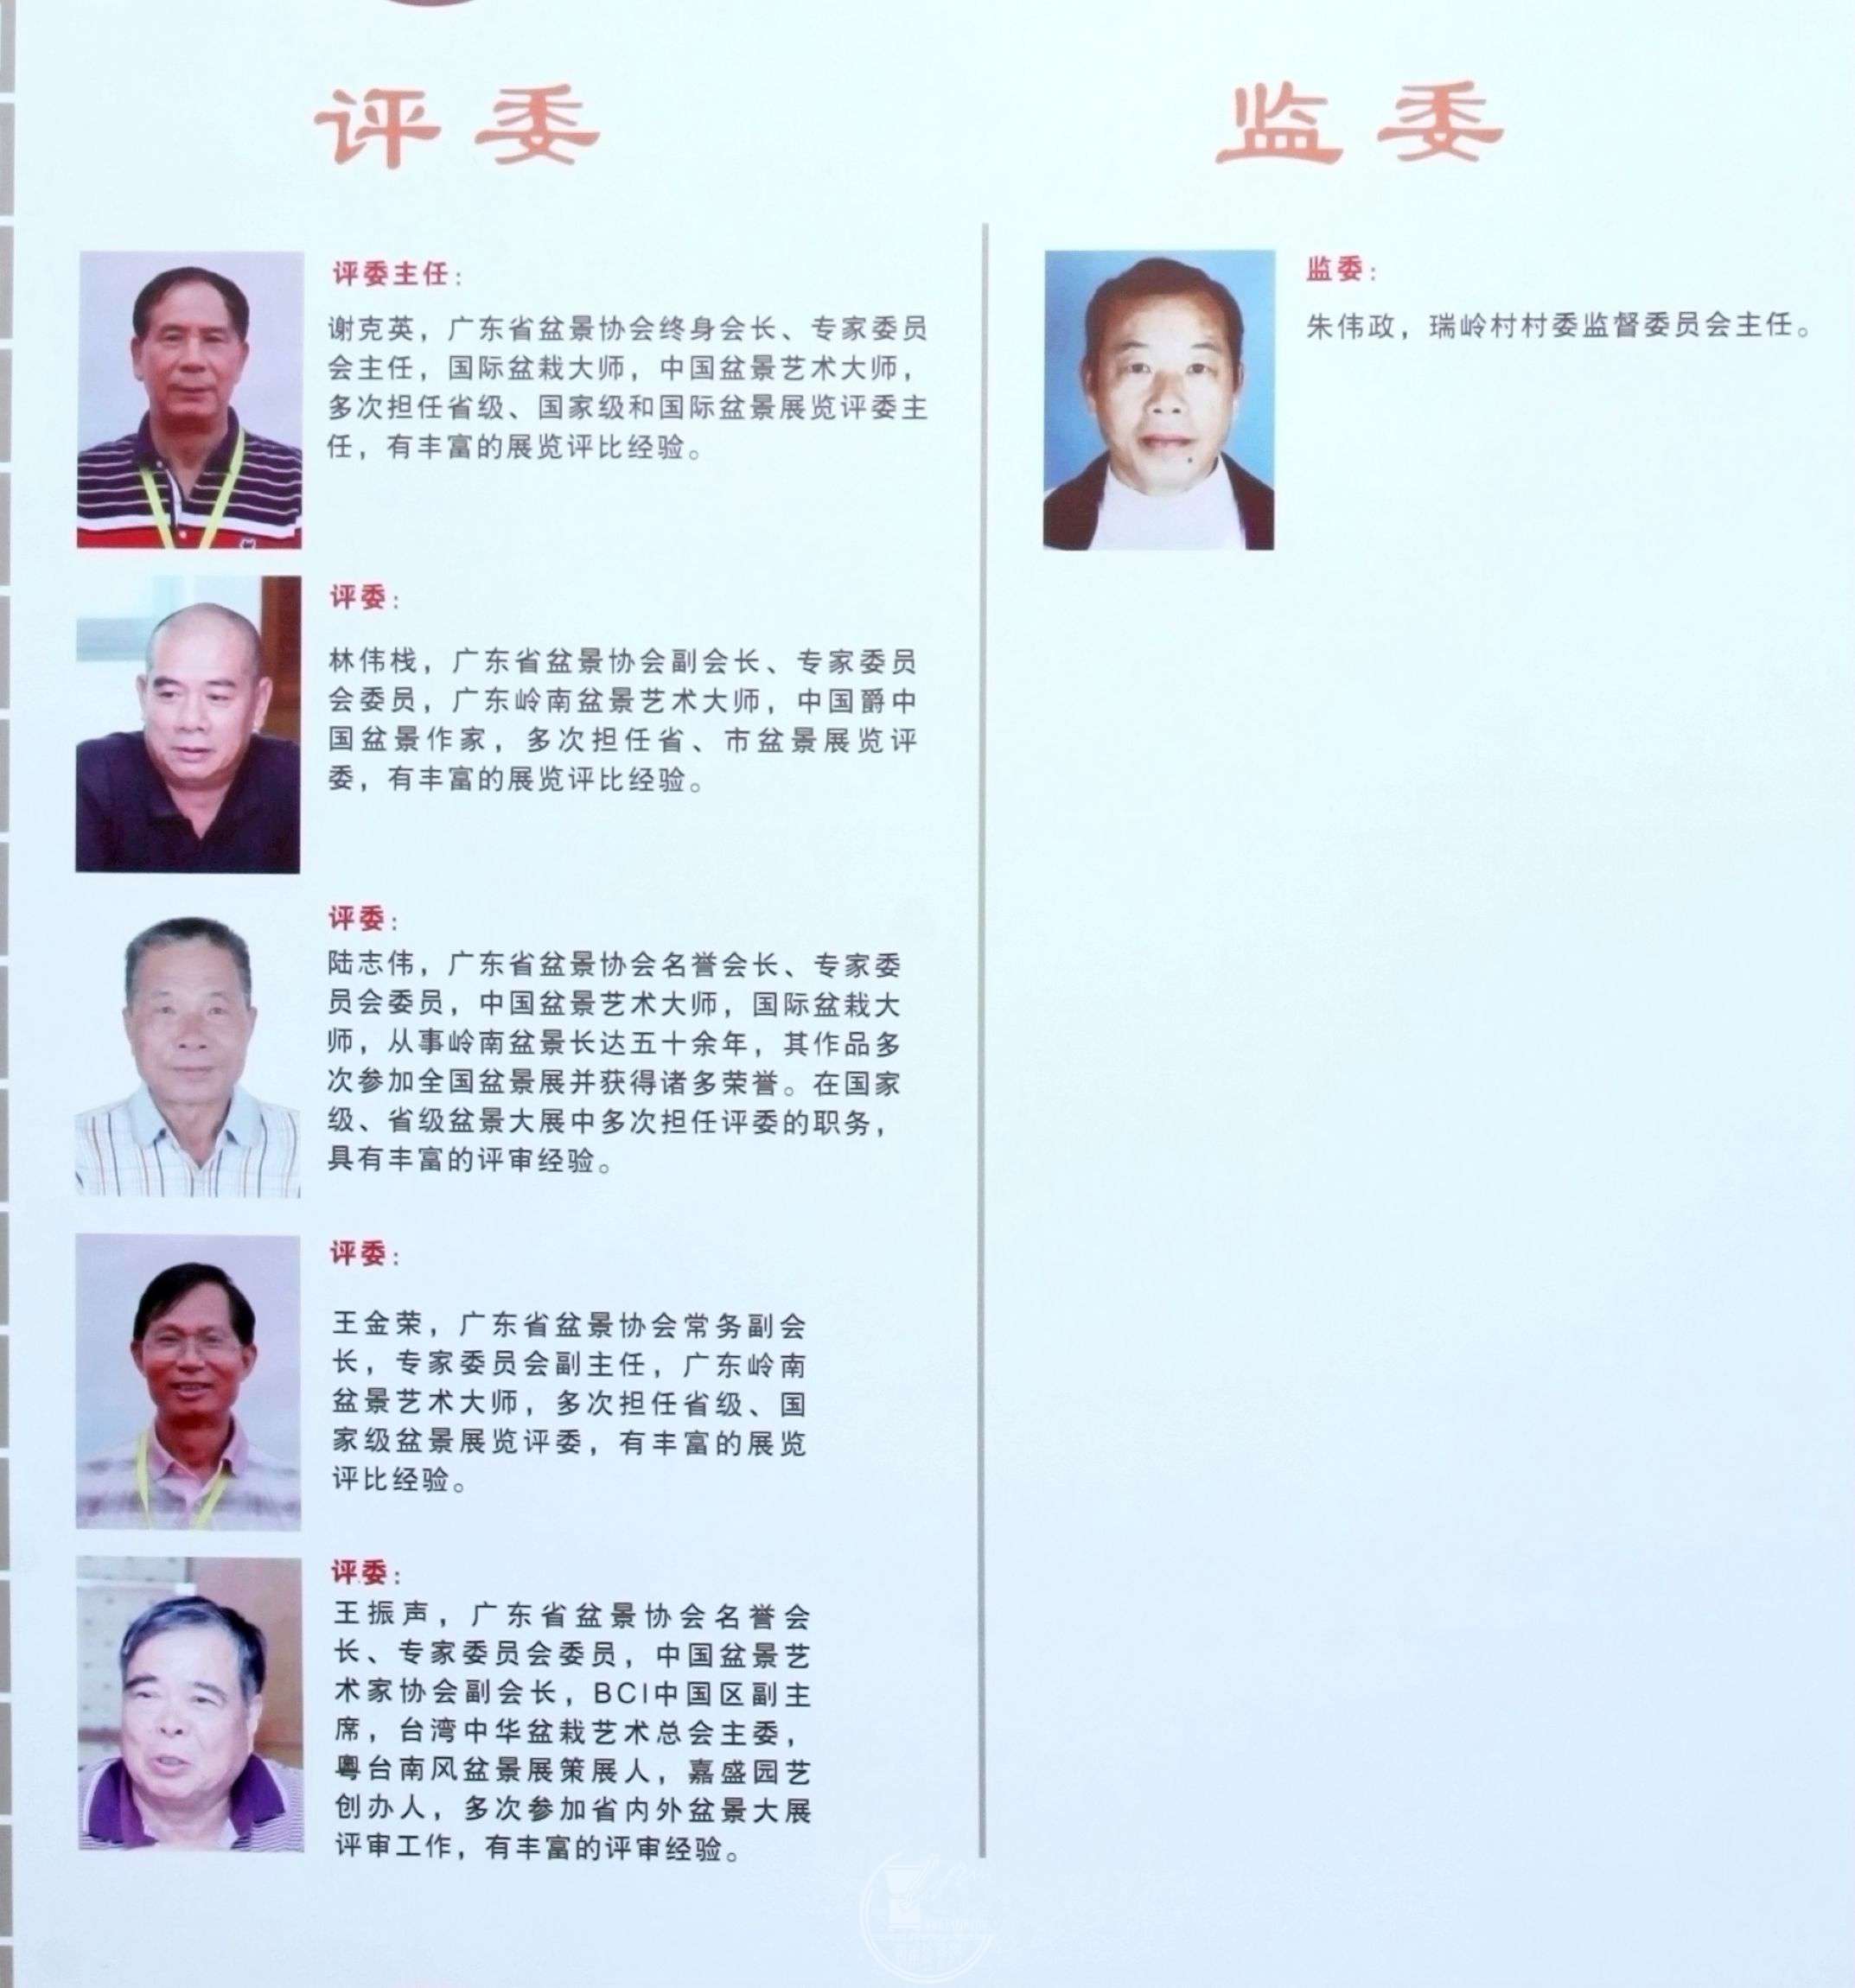 评委
评委主任：
谢克英，广东省盆景协会终身会长、专家委员
会主任，国际盆栽大师，中国盆景艺术大师，
多次担任省级、国家级和国际盆景展览评委主
任，有丰富的展览评比经验。
评委：
林伟栈，广东省盆景协会副会长、专家委员
会委员，广东岭南盆景艺术大师，中国爵中
国盆景作家，多次担任省、市盆景展览评
委，有丰富的展览评比经验。
评委：
陆志伟，广东省盆景协会名誉会长、专家委
员会委员，中国盆景艺术大师，国际盆栽大
师，从事岭南盆景长达五十余年，其作品多
次参加全国盆景展并获得诸多荣誉。在国家
级、省级盆景大展中多次担任评委的职务，
具有丰富的评审经验。
评委：
王金荣，广东省盆景协会常务副会
长，专家委员会副主任，广东岭南
盆景艺术大师，多次担任省级、国
家级盆景展览评委，有丰富的展览
评比经验。
评委：
王振声，广东省盆景协会名誉会
长、专家委员会委员，中国盆景艺
术家协会副会长，BCI中国区副主
席，台湾中华盆栽艺术总会主委，
粤台南风盆景展策展人，嘉盛园艺
创办人，多次参加省内外盆景大展
评审工作，有丰富的评审经验。
监委
监委：
朱伟政，瑞岭村村委监督委员会主任。